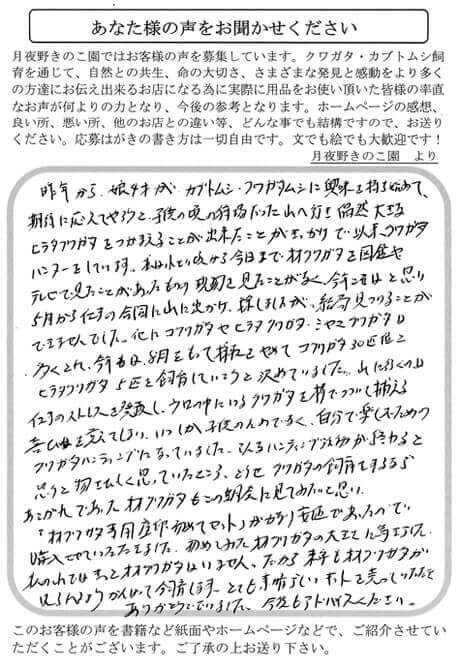 あなた様の声をお聞かせください
月夜野きのこ園ではお客様の声を募集しています。クワガタ・カブトムシ飼
育を通じて、自然との共生、命の大切さ、さまざまな発見と感動をより多く
の方達にお伝え出来るお店になる為に実際に用品をお使い頂いた皆様の率直
なお声が何よりの力となり、今後の参考となります。ホームページの感想、
良い所、悪い所、他のお店との違い等、どんな事でも結構ですので、お送り
ください。応募はがきの書き方は一切自由です。文でも絵でも大歓迎です!
月夜野きのこ園 より
昨年から、娘4才が カブトムシ・クワガタムシに興味を持ち始めて、
期待に応えてやろうと、子供の頃の狩場だった山へ行き偶然大きな
ヒラタクワガタをつかまえることが出来たことがきっかけで以来クワガタ
ハンターをしています。私は小さい頃から今日まで材クワガタを図鑑や
テレビで見たことがあったものの現物を見たことがなく、今年こそはと思い
5月から仕事の合間に山に出かけ、探しましたが、結局見つけることが
できませんでした。他にコクワガタやヒラタクワガタ、ミヤマクワガタは
多くとれ、今年は、8月をもって採取をやめてコクワガタ30匹程と
ヒラタクワガタ5匹を飼育していこうと決めていました。山に行くのは
仕事のストレスを発散し、ウロの中にいるクワガタを棒でつついて捕える
喜びを覚えてしまい、いつしか子供のためでなく、自分で楽しむための
クワガタハンティングになっていました。
思うと物さびしく思っていたところ、どうせクワガタの飼育をするなら
あこがれであった材クワガタもこの機会に見てみたいと思い、
「材クワガタ専用産卵初めてセット」がかなり安価であったので
購入させていただきました。初めてみた材クワガタの大きさに
私の山ではきっと材クワガタはいません。だから来年も材クワガタが
見られるようがんばって飼育します。とても素晴らしいセットを売っていただき
ありがとうございました。今後もアドバイスください。
このお客様の声を書籍など紙面やホームページなどで、ご紹介させてい
ただくことがございます。ご了承の上お送り下さい。